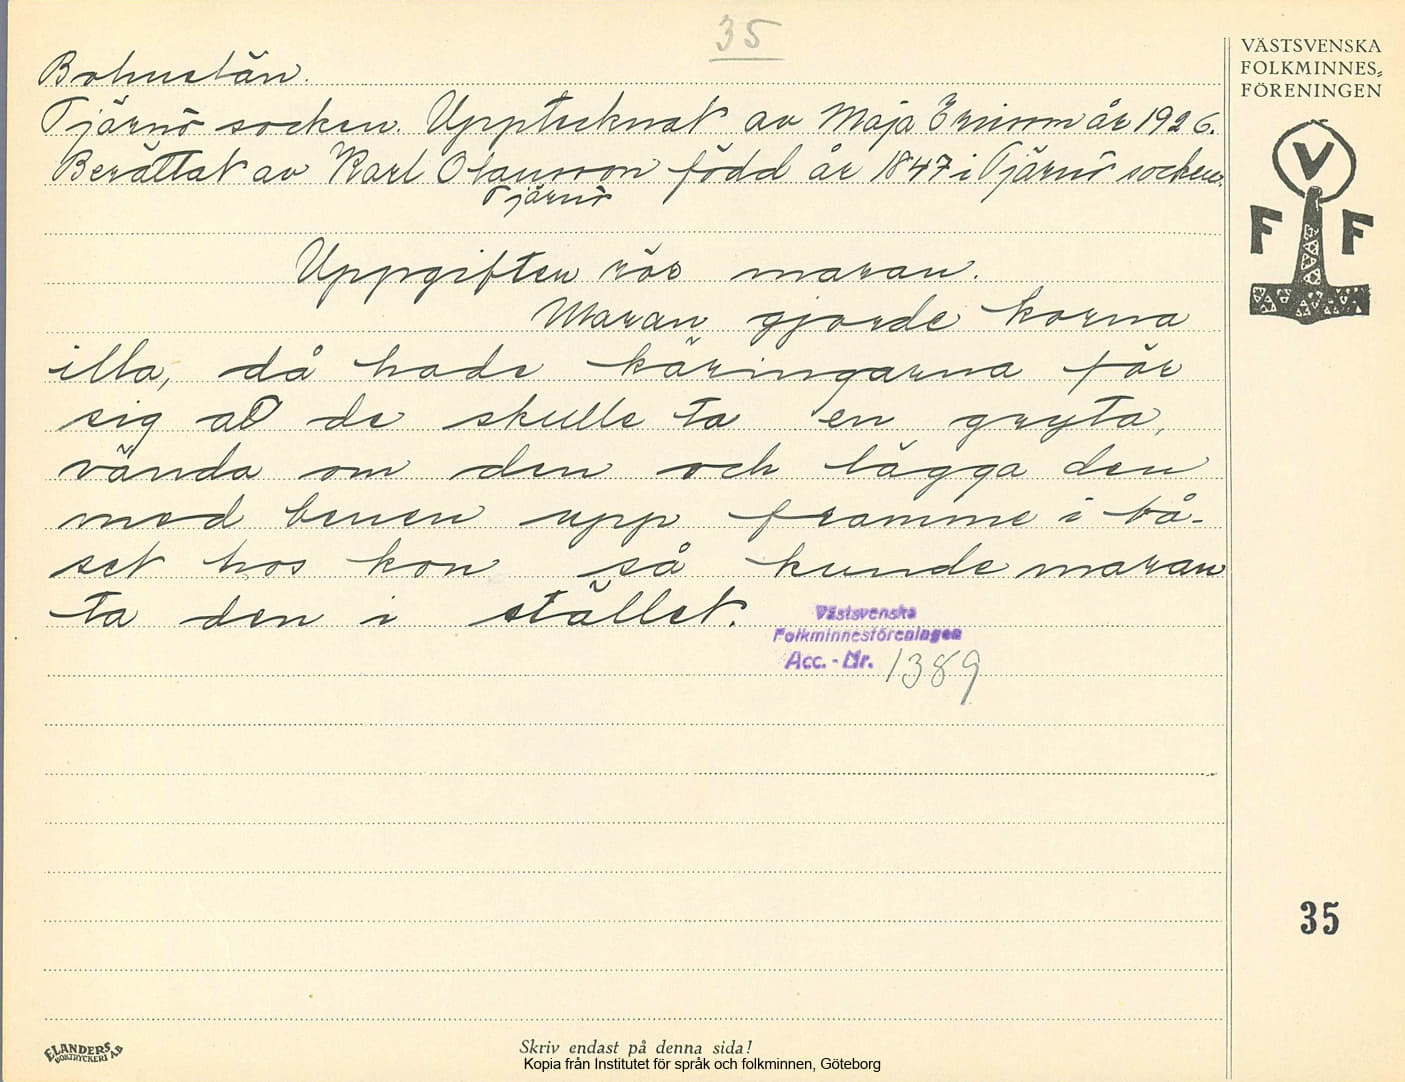 35
Bohuslän.
Tjärnö socken. Upptecknat av Maja Ericson år 1926.
Berättat av Karl Olausson född år 1847 i Tjärnö socken.
Tjärnö
Uppgiften rör maran.
Maran gjorde korna
illa, då hade käringarna för
sig att de skulle ta en gryta,
vända om den och lägga den
med benen upp framme i bå-
set hos kon så kunde maran
ta den i stället.
Västsvenska
Folkminnesföreningen
Acc. - Nr. 1389
VÄSTSVENSKA
FOLKMINNES-
FÖRENINGEN
V
F F
35
ELANDERS
BOKTRYCKERI A.B
Skriv endast på denna sida!
Kopia från Institutet för språk och folkminnen, Göteborg